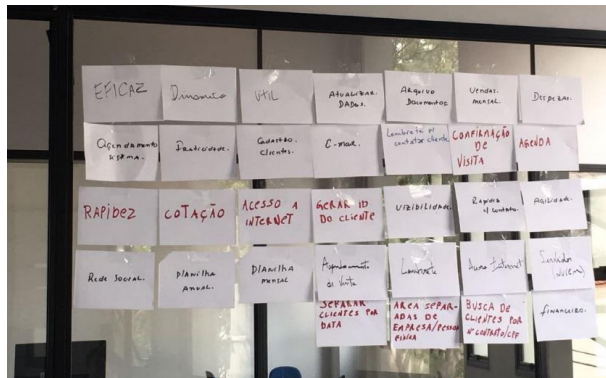 EFICAZ
Dinamico
UTIL
Atualizar
Dados.
Arquivo
Documentos
Vendas
mensal.
Despezas.
Agendamento
sistema.
Praticidade.
Cadastro
Clientes.
E-mail.
contatar cliente
CONFIRMAÇÃO
DE
VISITA
AGENDA
RAPIDEZ
COTAÇÃO
ACESSO A
INTERNET
GERAR ID
DO CLIENTE
VIZIBILIDADE.
Rapidez
contato.
AGILIDADE.
Rede Social.
Planilha
ANUAL.
Planilha
mensal
Agendamento
de visita
Lembrete
Acesso Internet
Servidor
(nuvem)
SEPARAR
CLIENTES POR
DATA
AREA SEPAR-
ADAS DE
EMPRESA/PESSOA
FISICA
BUSCA DE
CLIENTES POR
Nº CONTRATO/CPF
FINANCEIRO.